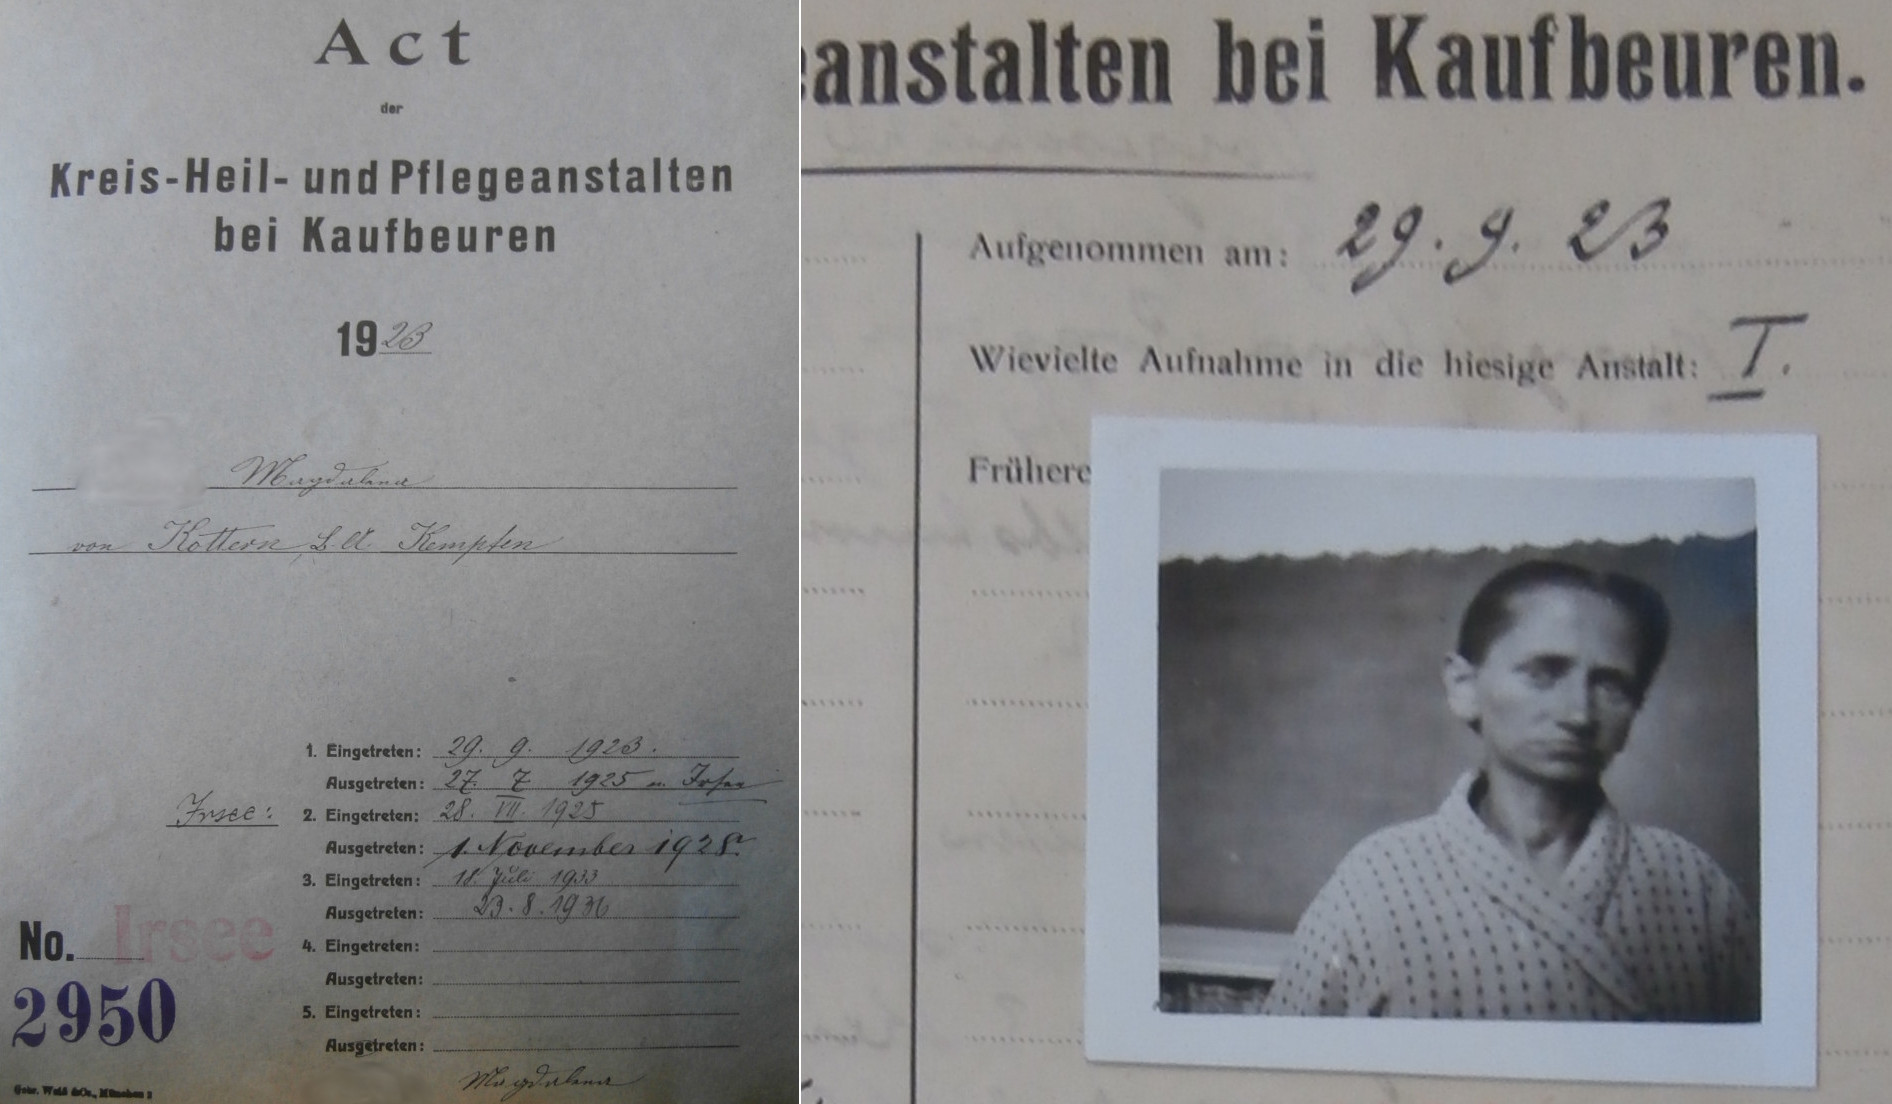 Act
der
Kreis-Heil- und Pflegeanstalten
bei Kaufbeuren
1923
Magdalena
von Kottern, B.A. Kempten
1. Eingetreten: 29. 9. 1923.
Ausgetreten: 27. 7. 1925 n. Irsee
Irsee: 2. Eingetreten: 28. VII. 1925
Ausgetreten: 1. November 1928.
3. Eingetreten: 18. Juli 1933
Ausgetreten: 23. 8. 1936
No. Irsee
4. Eingetreten:
Ausgetreten:
2950
5. Eingetreten:
Ausgetreten:
Magdalena
Gebr. Weiß &Co., München 2
eanstalten bei Kaufbeuren.
Aufgenommen am: 29. 9. 23
Wievielte Aufnahme in die hiesige Anstalt: I.
Frühere